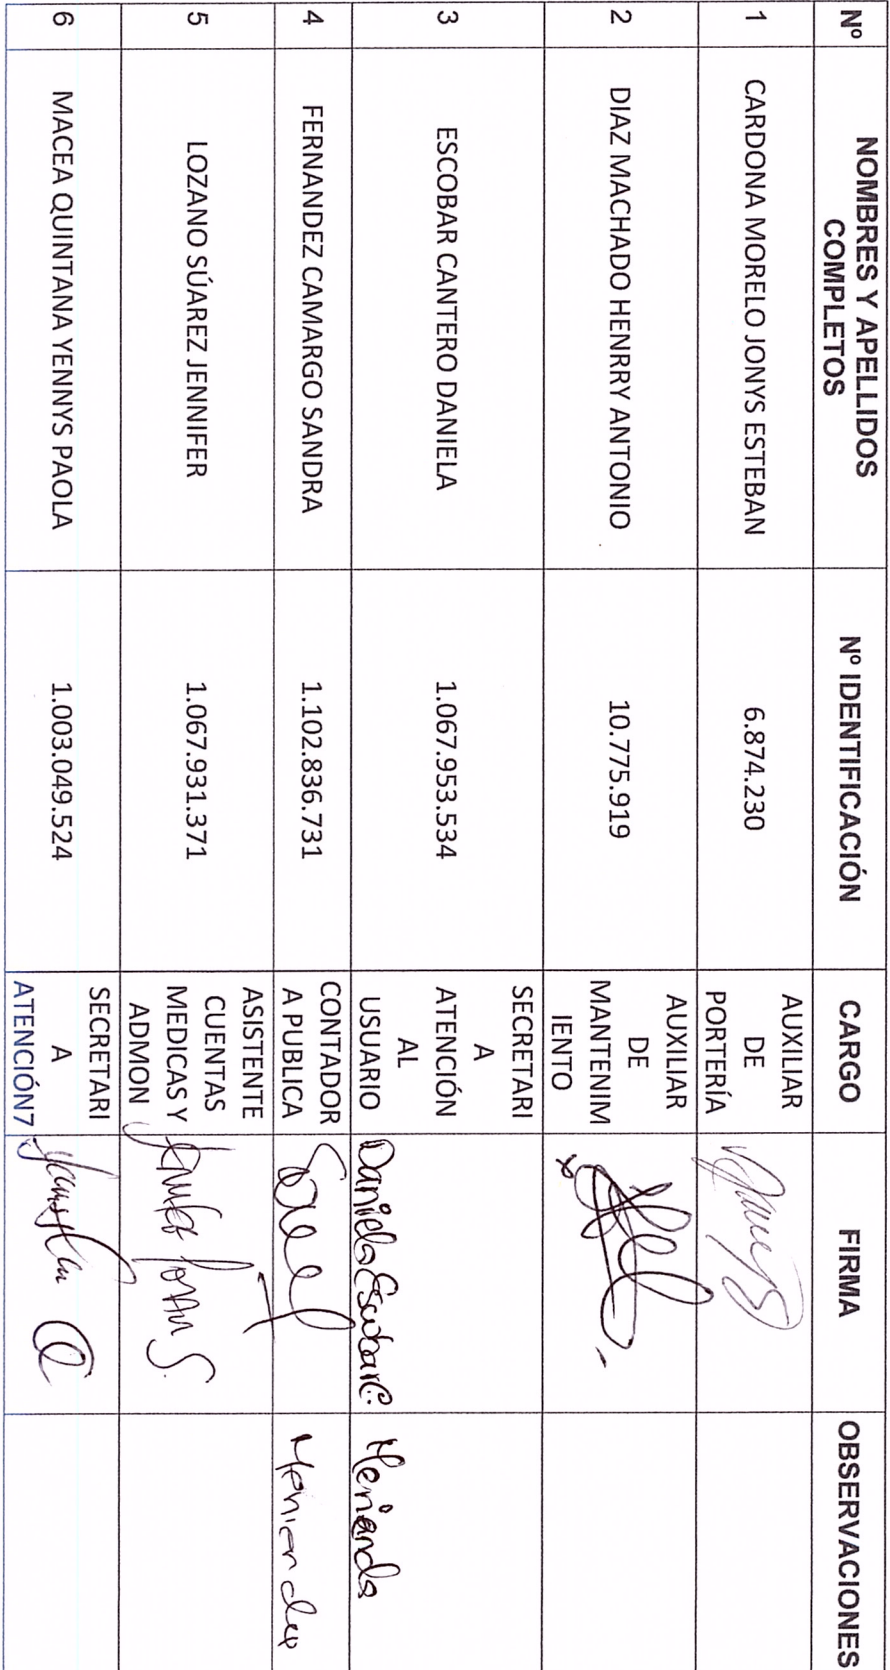 Nº
NOMBRES Y APELLIDOS
COMPLETOS
Nº IDENTIFICACIÓN
CARGO
FIRMA
OBSERVACIONES
1
CARDONA MORELO JONYS ESTEBAN
6.874.230
AUXILIAR
DE
PORTERÍA
2
DIAZ MACHADO HENRRY ANTONIO
10.775.919
AUXILIAR
DE
MANTENIM
IENTO
3
ESCOBAR CANTERO DANIELA
1.067.953.534
SECRETARI
A
ATENCIÓN
AL
USUARIO
Daniela Escobar C.
4
FERNANDEZ CAMARGO SANDRA
1.102.836.731
CONTADOR
A PUBLICA
5
LOZANO SÚAREZ JENNIFER
1.067.931.371
ASISTENTE
CUENTAS
MEDICAS Y
ADMON
6
MACEA QUINTANA YENNYS PAOLA
1.003.049.524
SECRETARI
A
ATENCIÓN7